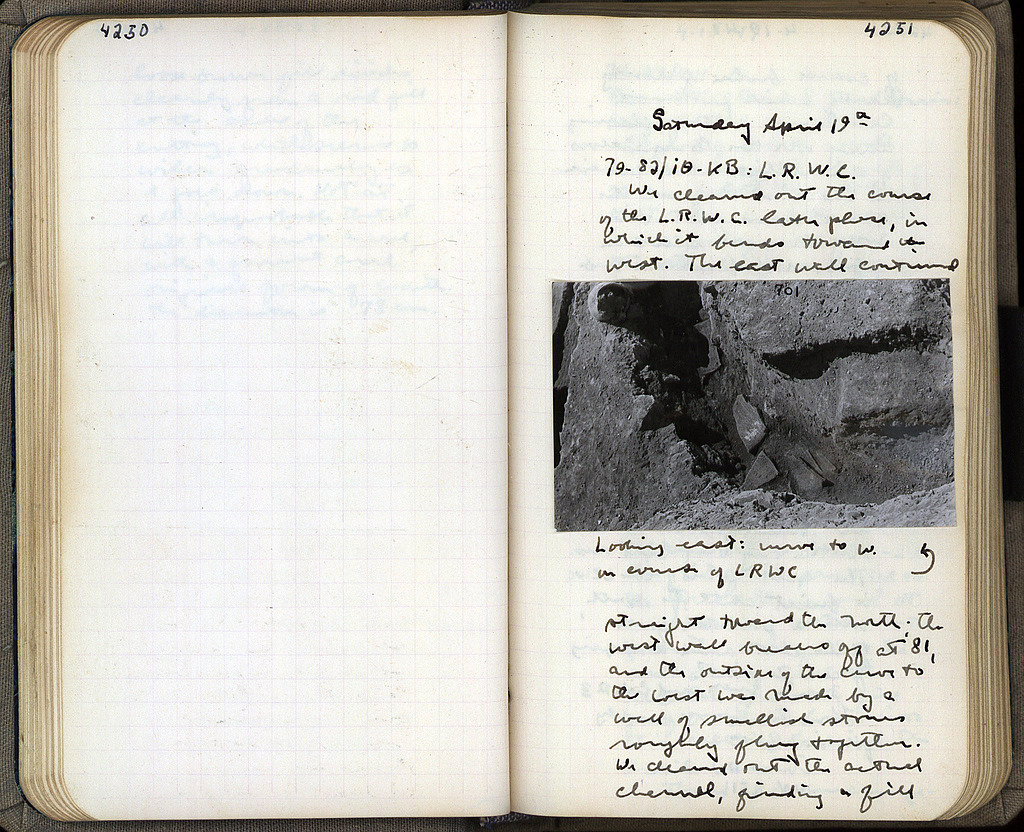 4230
4251
Saturday April 19
79-82/ΙΘ-ΚΒ: L. R. W. C.
We cleaned out the course
of the L.R.W.C. later phase, in
which it bends toward the
west. The east wall continued
701
Looking east: curve to W.
in course of LRWC
straight toward the north; the
west wall breaks off at 81,
and the outside of the curve to
the west was made by a
wall of smallish stones
roughly flung together.
We cleaned out the actual
channel, finding a fill